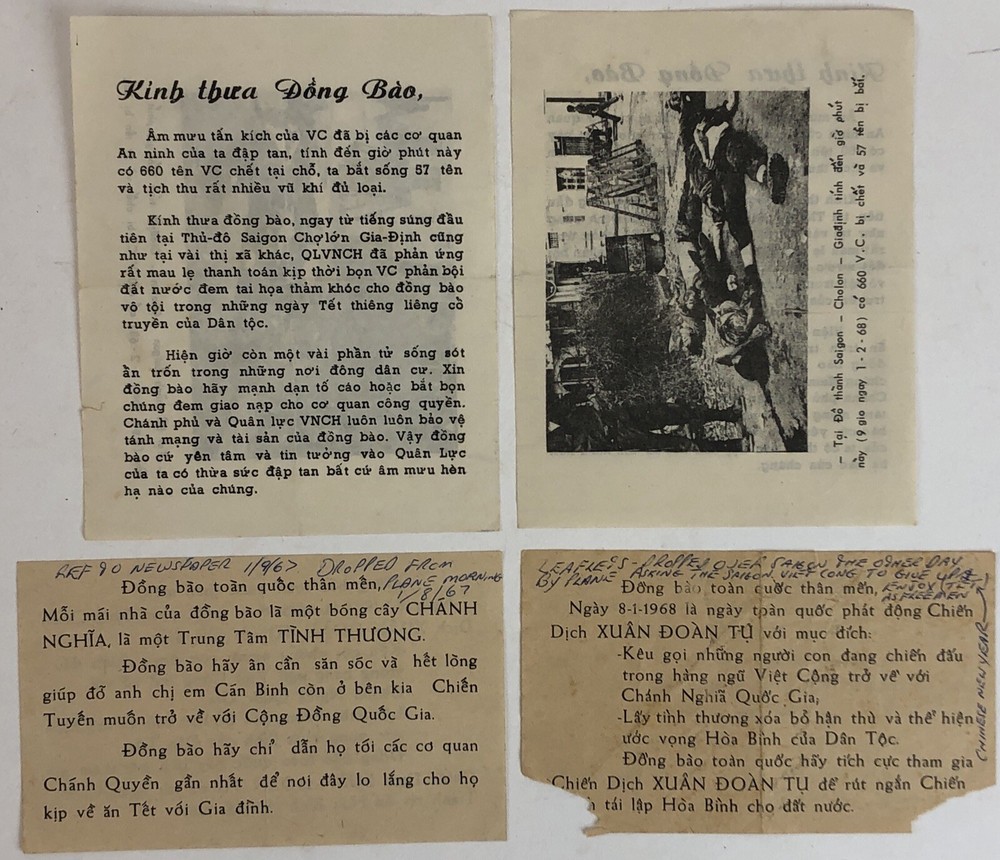 Kính thưa Đồng Bào,
Âm mưu tấn kích của VC đã bị các cơ quan
An ninh của ta đập tan, tính đến giờ phút này
có 660 tên VC chết tại chỗ, ta bắt sống 57 tên
và tịch thu rất nhiều vũ khí đủ loại.
Kính thưa đồng bào, ngay từ tiếng súng đầu
tiên tại Thủ-đô Saigon Chợlớn Gia-Định cũng
như tại vài thị xã khác, QLVNCH đã phản ứng
rất mau lẹ thanh toán kịp thời bọn VC phản bội
đất nước đem tai họa thảm khóc cho đồng bào
vô tội trong những ngày Tết thiêng liêng cổ
truyền của Dân tộc.
Hiện giờ còn một vài phần tử sống sót
ẩn trốn trong những nơi đông dân cư. Xin
đồng bào hãy mạnh dạn tố cáo hoặc bắt bọn
chúng đem giao nạp cho cơ quan công quyền.
Chánh phủ và Quân lực VNCH luôn luôn bảo vệ
tánh mạng và tài sản của đồng bào. Vậy đồng
bào cứ yên tâm và tin tưởng vào Quân Lực
của ta có thừa sức đập tan bất cứ âm mưu hèn
hạ nào của chúng.
– Tại Đô thành Saigon – Cholon – Giađịnh tính đến giờ phút
này (9 gio ngay 1-2-68) có 660 V.C. bị chết và 57 tên bị bắt.
REF 90 NEWSPAPER 1/9/67 DROPPED FROM
PLANE MORNING
1/8/67
Đồng bào toàn quốc thân mến,
Mỗi mái nhà của đồng bào là một bóng cây CHÁNH
NGHĨA, là một Trung Tâm TÌNH THƯƠNG.
Đồng bào hãy ân cần săn sóc và hết lòng
giúp đỡ anh chị em Cán Binh còn ở bên kia Chiến
Tuyến muốn trở về với Cộng Đồng Quốc Gia.
Đồng bào hãy chỉ dẫn họ tới các cơ quan
Chánh Quyền gần nhất để nơi đây lo lắng cho họ
kịp về ăn Tết với Gia đình.
LEAFLETS - DROPPED OVER SAIGON THE OTHER DAY
BY PLANE ASKING THE SAIGON VIET CONG TO GIVE UP &
ENJOY TET
AS FREE MEN
CHINESE NEW YEAR
Đồng bào toàn quốc thân mến,
Ngày 8-1-1968 là ngày toàn quốc phát động Chiến
Dịch XUÂN ĐOÀN TỤ với mục đích:
-Kêu gọi những người con đang chiến đấu
trong hàng ngũ Việt Cộng trở về với
Chánh Nghiã Quốc Gia;
-Lấy tình thương xóa bỏ hận thù và thể hiện
ước vọng Hòa Bình của Dân Tộc.
Đồng bào toàn quốc hãy tích cực tham gia
Chiến Dịch XUÂN ĐOÀN TỤ để rút ngắn Chiến
tái lập Hòa Bình cho đất nước.